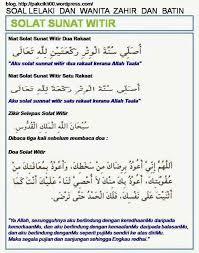 blog. http://pakcikli00.wordpress.com/
SOAL LELAKI DAN WANITA ZAHIR DAN BATIN
SOLAT SUNAT WITIR
Niat Solat Sunat Witir Dua Rakaat
أُصَلِّي سُنَّةَ الْوِتْرِ رَكْعَتَيْنِ لِلَّهِ تَعَالَى
"Aku solat sunnat witir dua rakaat kerana Allah Taala"
Niat Solat Sunat Witir Satu Rakaat
أُصَلِّي سُنَّةَ الْوِتْرِ رَكْعَةً لِلَّهِ تَعَالَى
"Aku solat sunnat witir satu rakaat kerana Allah Taala"
Zikir Selepas Solat Witir
سُبْحَانَ اللَّهِ الْمَلِكِ الْقُدُّوسِ
Dibaca tiga kali sebelum membaca doa :
Doa Solat Witir
اللَّهُمَّ إِنِّي أَعُوذُ بِرِضَاكَ مِنْ سَخَطِكَ، وَأَعُوذُ بِمُعَافَاتِكَ مِنْ
عُقُوبَتِكَ، وَأَعُوذُ بِكَ مِنْكَ لَا أُحْصِي ثَنَاءً عَلَيْكَ أَنْتَ كَمَا
أَثْنَيْتَ عَلَى نَفْسِكَ، فَلَكَ الْحَمْدُ حَتَّى تَرْضَى.
"Ya Allah, sesungguhnya aku berlindung dengan keredhaanMu daripada
kemurkaanMu, dan aku berlindung dengan keampunanMu daripada balasanMu,
dan aku berlindung denganMu
Maka segala pujian dan sanjungan sehingga Engkau redha."